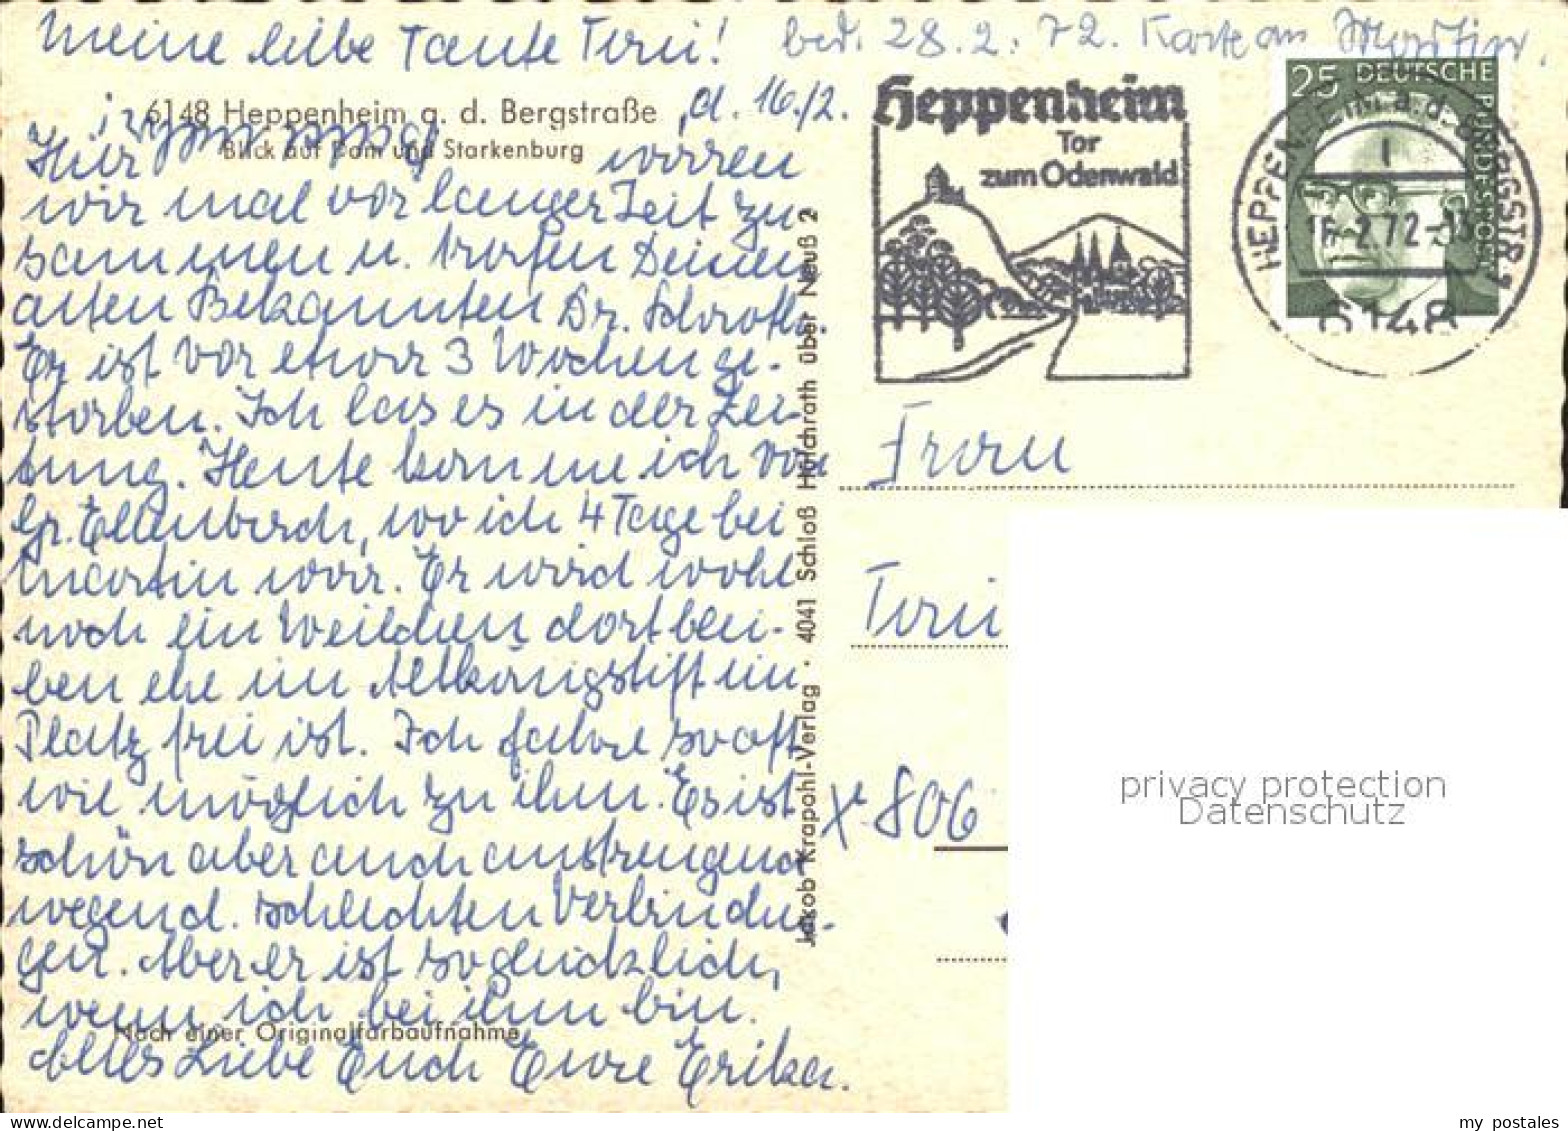 Meine liebe Tante Trui!
bed. 28.2.72. Karte an Martin.
6148 Heppenheim a. d. Bergstraße
d. 16./2.
Blick auf Dom und Starkenburg
Hier waren
wir mal vor langer Zeit zu
sammen u. trafen Deinen
alten Bekannten Dr.
Er ist vor etwa 3 Wochen ge-
storben. Ich las es in der Zei-
tung. Heute komme ich von
Gr. Ellenbach, wo ich 4 Tage bei
Martin war. Er wird wohl
noch ein Weilchen dort blei-
ben ehe im Altkönigstift ein
Platz frei ist. Ich fahre so oft
wie möglich zu ihm. Es ist
schön aber auch anstrengend
wegend. schlechten Verbindun-
gen. Aber er ist so glücklich,
wenn ich bei ihm bin.
Nach einer Originalfarbaufnahme
Alles Liebe Euch Eure Erika.
Jakob Krapohl-Verlag · 4041 Schloß Hülchrath über Neuß 2
Heppenheim
Tor
zum Odenwald
25 DEUTSCHE
BUNDESPOST
HEPPENHEIM a. d. BERGSTR 1
16.2.72-13
6148
Frau
x 806
privacy protection
Datenschutz
my postales